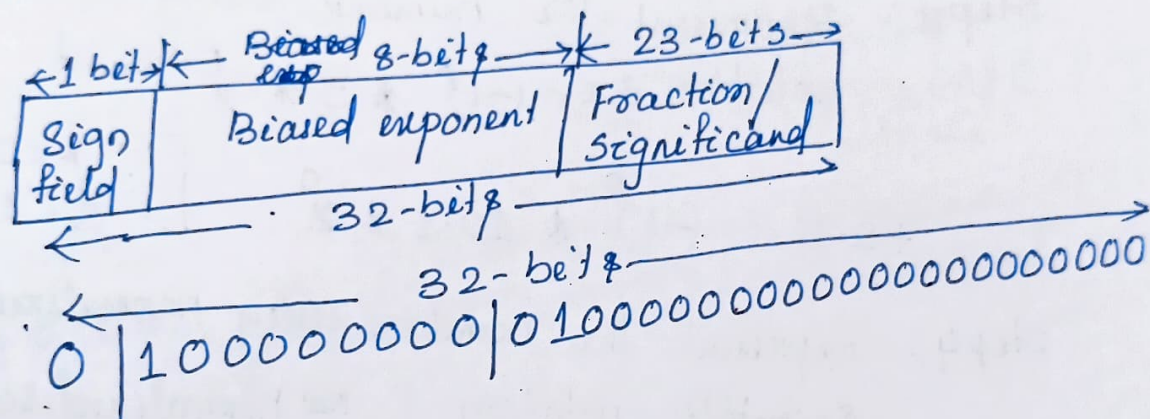 ←1 bit→ ← Biased 8-bits → ← 23-bits →
Sign field Biased exponent Fraction/ significand
32-bits
32-bits
0 | 100000000 | 01000000000000000000000